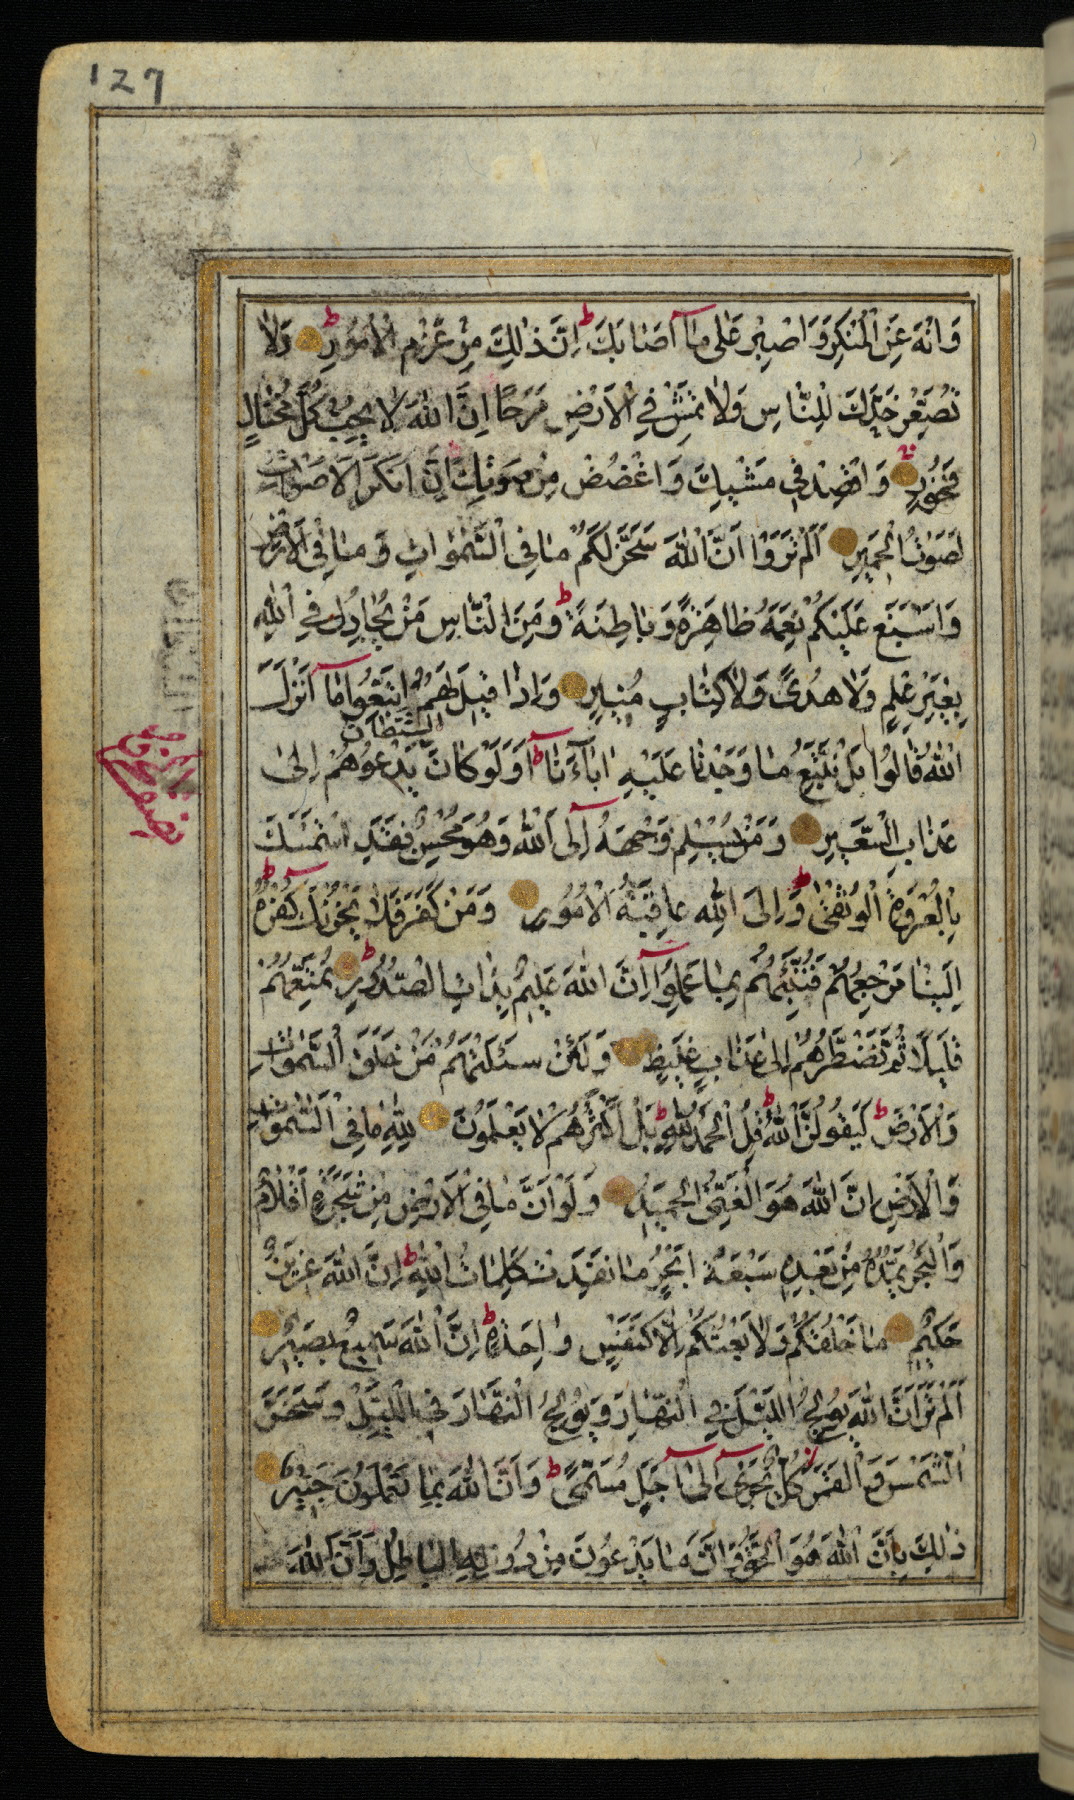 127
وَانْهَ عَنِ الْمُنْكَرِ وَاصْبِرْ عَلٰى مَآ اَصَابَكَ ط اِنَّ ذٰلِكَ مِنْ عَزْمِ الْاُمُورِ ط وَلَا
تُصَعِّرْ خَدَّكَ لِلنَّاسِ وَلَا تَمْشِ فِي الْاَرْضِ مَرَحًا اِنَّ اللّٰهَ لَا يُحِبُّ كُلَّ مُخْتَالٍ
فَخُورٍ وَاقْصِدْ فِي مَشْيِكَ وَاغْضُضْ مِنْ صَوْتِكَ اِنَّ اَنْكَرَ الْاَصْوَاتِ
لَصَوْتُ الْحَمِيرِ اَلَمْ تَرَوْا اَنَّ اللّٰهَ سَخَّرَ لَكُمْ مَا فِي السَّمٰوَاتِ وَمَا فِي الْاَرْضِ
وَاَسْبَغَ عَلَيْكُمْ نِعَمَهُ ظَاهِرَةً وَبَاطِنَةً ط وَمِنَ النَّاسِ مَنْ يُجَادِلُ فِي اللّٰهِ
بِغَيْرِ عِلْمٍ وَلَا هُدًى وَلَا كِتَابٍ مُنِيرٍ وَاِذَا قِيلَ لَهُمُ اتَّبِعُوا مَآ اَنْزَلَ
اللّٰهُ قَالُوا بَلْ نَتَّبِعُ مَا وَجَدْنَا عَلَيْهِ اٰبَآءَنَا ط اَوَلَوْ كَانَ الشَّيْطَانُ يَدْعُوهُمْ اِلٰى
عَذَابِ السَّعِيرِ وَمَنْ يُسْلِمْ وَجْهَهُ اِلَى اللّٰهِ وَهُوَ مُحْسِنٌ فَقَدِ اسْتَمْسَكَ
بِالْعُرْوَةِ الْوُثْقٰى ط وَاِلَى اللّٰهِ عَاقِبَةُ الْاُمُورِ وَمَنْ كَفَرَ فَلَا يَحْزُنْكَ كُفْرُهُ ط
اِلَيْنَا مَرْجِعُهُمْ فَنُنَبِّئُهُمْ بِمَا عَمِلُوا اِنَّ اللّٰهَ عَلِيمٌ بِذَاتِ الصُّدُورِ ط نُمَتِّعُهُمْ
قَلِيلًا ثُمَّ نَضْطَرُّهُمْ اِلٰى عَذَابٍ غَلِيظٍ وَلَئِنْ سَئَلْتَهُمْ مَنْ خَلَقَ السَّمٰوَاتِ
وَالْاَرْضَ ط لَيَقُولُنَّ اللّٰهُ ط قُلِ الْحَمْدُ لِلّٰهِ ط بَلْ اَكْثَرُهُمْ لَا يَعْلَمُونَ لِلّٰهِ مَا فِي السَّمٰوَاتِ
وَالْاَرْضِ اِنَّ اللّٰهَ هُوَ الْغَنِيُّ الْحَمِيدُ وَلَوْ اَنَّ مَا فِي الْاَرْضِ مِنْ شَجَرَةٍ اَقْلَامٌ
وَالْبَحْرُ يَمُدُّهُ مِنْ بَعْدِهِ سَبْعَةُ اَبْحُرٍ مَا نَفِدَتْ كَلِمَاتُ اللّٰهِ ط اِنَّ اللّٰهَ عَزِيزٌ
حَكِيمٌ مَا خَلْقُكُمْ وَلَا بَعْثُكُمْ اِلَّا كَنَفْسٍ وَاحِدَةٍ ط اِنَّ اللّٰهَ سَمِيعٌ بَصِيرٌ
اَلَمْ تَرَ اَنَّ اللّٰهَ يُولِجُ اللَّيْلَ فِي النَّهَارِ وَيُولِجُ النَّهَارَ فِي اللَّيْلِ وَسَخَّرَ
الشَّمْسَ وَالْقَمَرَ كُلٌّ يَجْرِي اِلٰى اَجَلٍ مُسَمًّى ط وَاَنَّ اللّٰهَ بِمَا تَعْمَلُونَ خَبِيرٌ
ذٰلِكَ بِاَنَّ اللّٰهَ هُوَ الْحَقُّ وَاَنَّ مَا يَدْعُونَ مِنْ دُونِهِ الْبَاطِلُ وَاَنَّ اللّٰهَ